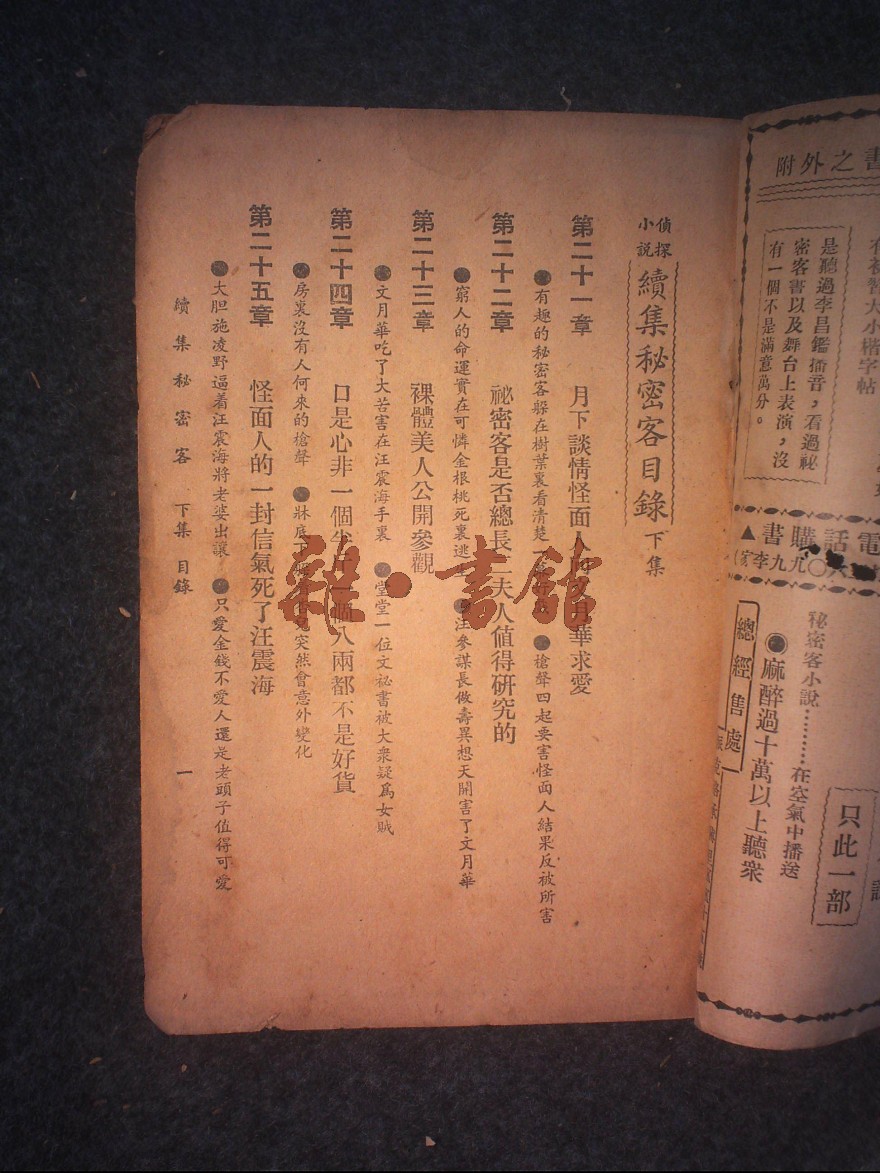 偵探小説 續集秘密客目錄 下集
第二十一章 月下談情怪面人向文月華求愛
●有趣的秘密客躲在樹葉裏看清楚 ●槍聲四起要害怪面人結果反被所害
第二十二章 祕密客是否總長二夫人值得研究的
●窮人的命運實在可憐金根桃死裏逃生 ●汪參謀長做壽異想天開害了文月華
第二十三章 裸體美人公開參觀
●文月華吃了大苦害在汪震海手裏 ●堂堂一位文祕書被大衆疑爲女賊
第二十四章 口是心非一個半斤一個八兩都不是好貨
●房裏沒有人何來的槍聲 ●牀底下 突然會意外變化
第二十五章 怪面人的一封信氣死了汪震海
●大胆施凌野逼着汪震海將老婆出讓 ●只愛金錢不愛人還是老頭子值得可愛
續集秘密客 下集 目錄 一
書之外附
有初習大小楷字帖
是聽過李昌鑑播音，看過祕
密客書以及舞台上表演，沒
有一個不是滿意萬分。
電話購書▲
秘密客小說………在空氣中播送
●麻醉過十萬以上聽衆
總經售處
只此一部
雜·書館